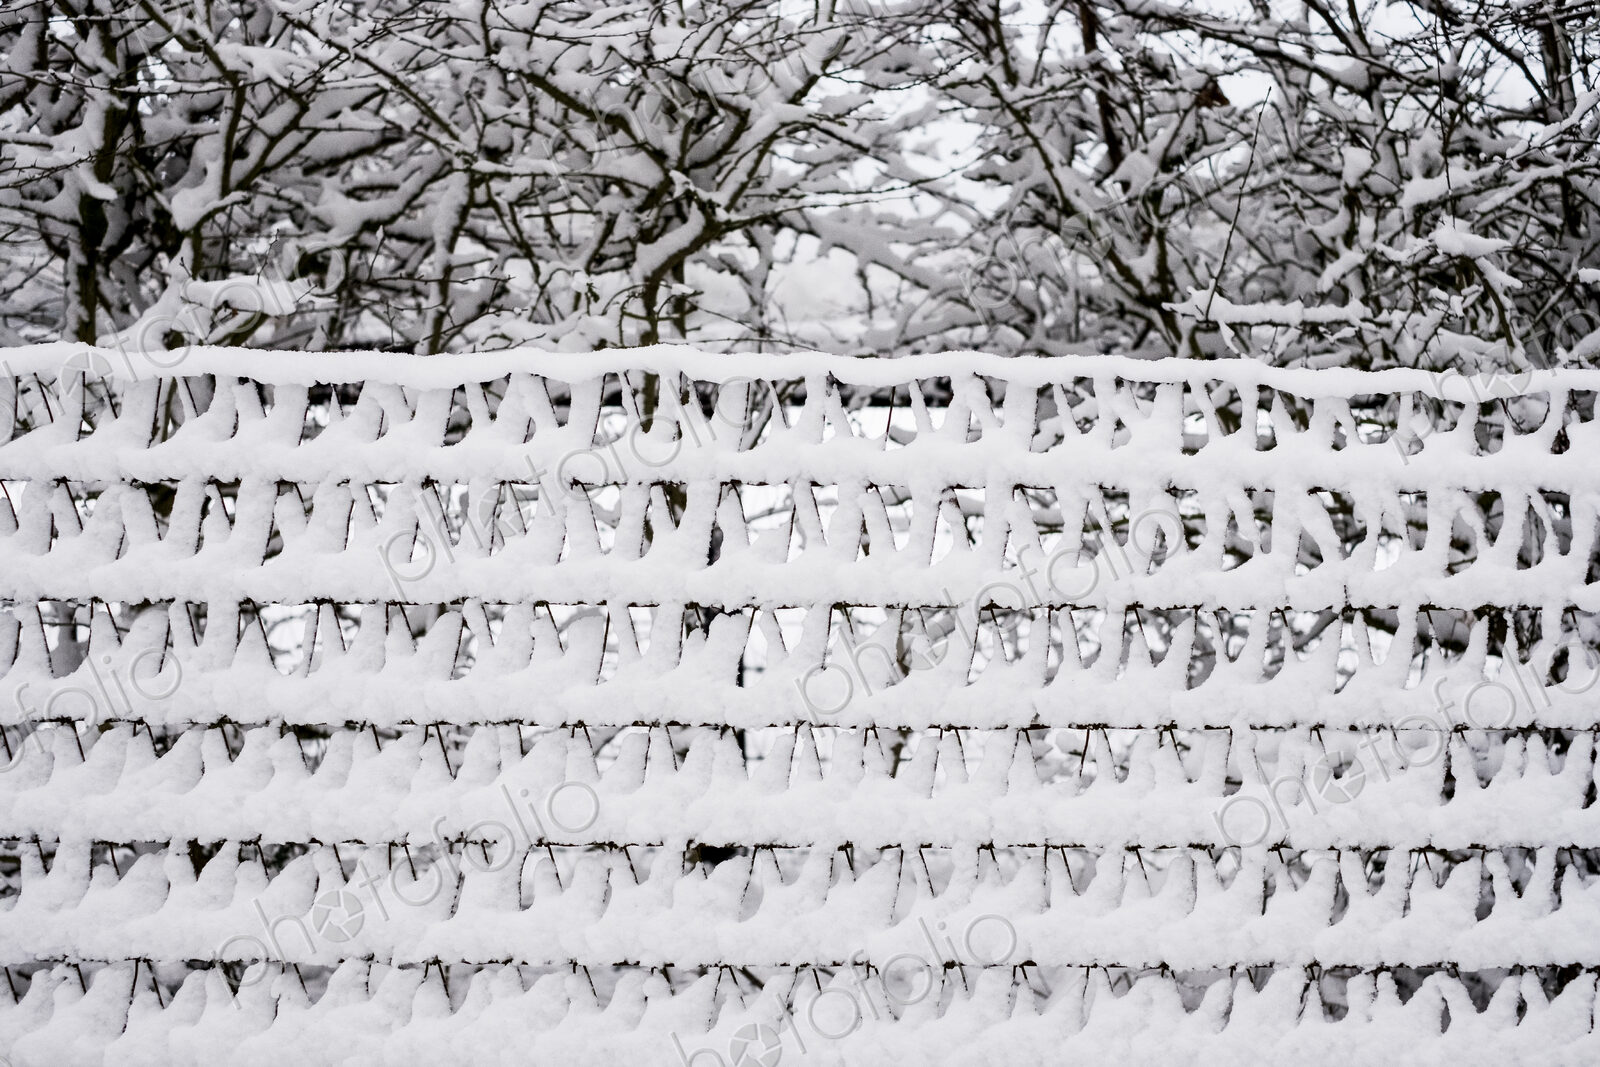 photofolio
photofolio
photofolio
photofolio
photofolio
photofolio
photofolio
photofolio
photofolio
photofolio